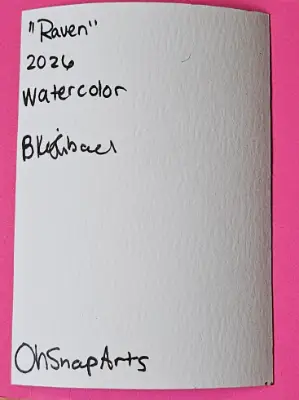 "Raven"
2026
Watercolor
OhSnapArts